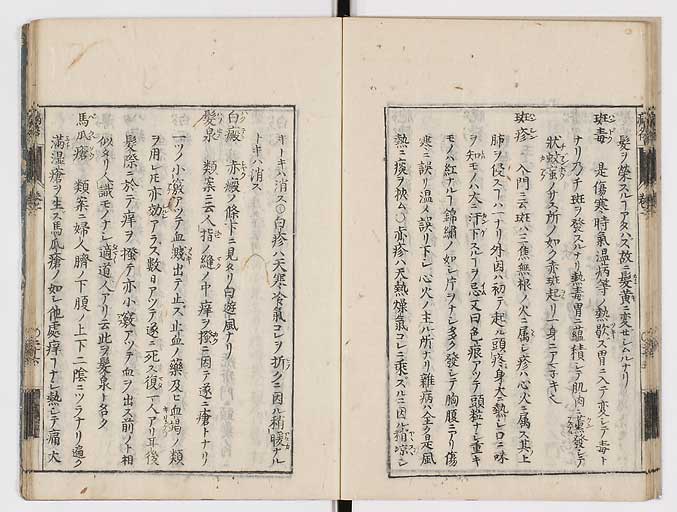 髪ヲ榮スルーアタハズ故ニ髪黄ニ変セシムルナリ
斑毒 是傷寒時氣温病等ノ熱歇ス胃ニ入テ変シテ毒ト
ナリ乃チ斑ヲ發スルナリ熱毒胃ニ蘊積シテ肌肉ニ薫發シテ
状蚊蚤ノサス所ノ如ク赤斑起リ一身ニアマネキヿ
斑疹 入門ニ云斑ハ三焦無根ノ火ニ属シ疹ハ心火ニ属ス其上
肺ヲ侵スヿハ一ナリ外因ハ初テ起ル頭疼身大ニ熱シ口ニ味
ヲ知 モノハ大ニ汗下スルーヲ忌又曰色痕アツテ頭粒ナシ重キ
モノハ紅ナルヿ錦繡ノ如シ片ヲナシ多ク發シテ胸腹ニアリ傷
寒ニ誤リ温メ誤リ下シ心火ノ主ル所ナリ雜病ハ全ク是風
熱ニ痰ヲ挾ム○赤疹ハ天熱燥氣コレニ乘スルニ因 稍凉シ
キトキハ消ス○白疹ハ天寒冷氣コレヲ折クニ因ル稍暖ナル
トキハ消ス
白癜 赤癜ノ條下ニ見タリ白遊風ナリ
髪泉 類案ニ云人指ノ縫ノ中痒ヲ撥クニ因テ遂ニ瘡トナリ
一ツノ小竅アツテ血濺出テ止ス止血ノ藥及ヒ血竭ノ類
ヲ用レ𪜈亦効アラス数日アツテ遂ニ死ス復一人アリ耳後
髪際ニ於テ痒ヲ撥テ亦小竅アツテ血ヲ出ス前ノト相
似タリ人識モノナシ適道人アリ云此ヲ髪泉ト名ク
馬瓜瘡 類案ニ婦人臍ノ下腹ノ上下二陰ニツラナリ遍ク
満湿瘡ヲ生ス馬瓜瘡ノ如シ他處痒ーナシ熱シテ痛大